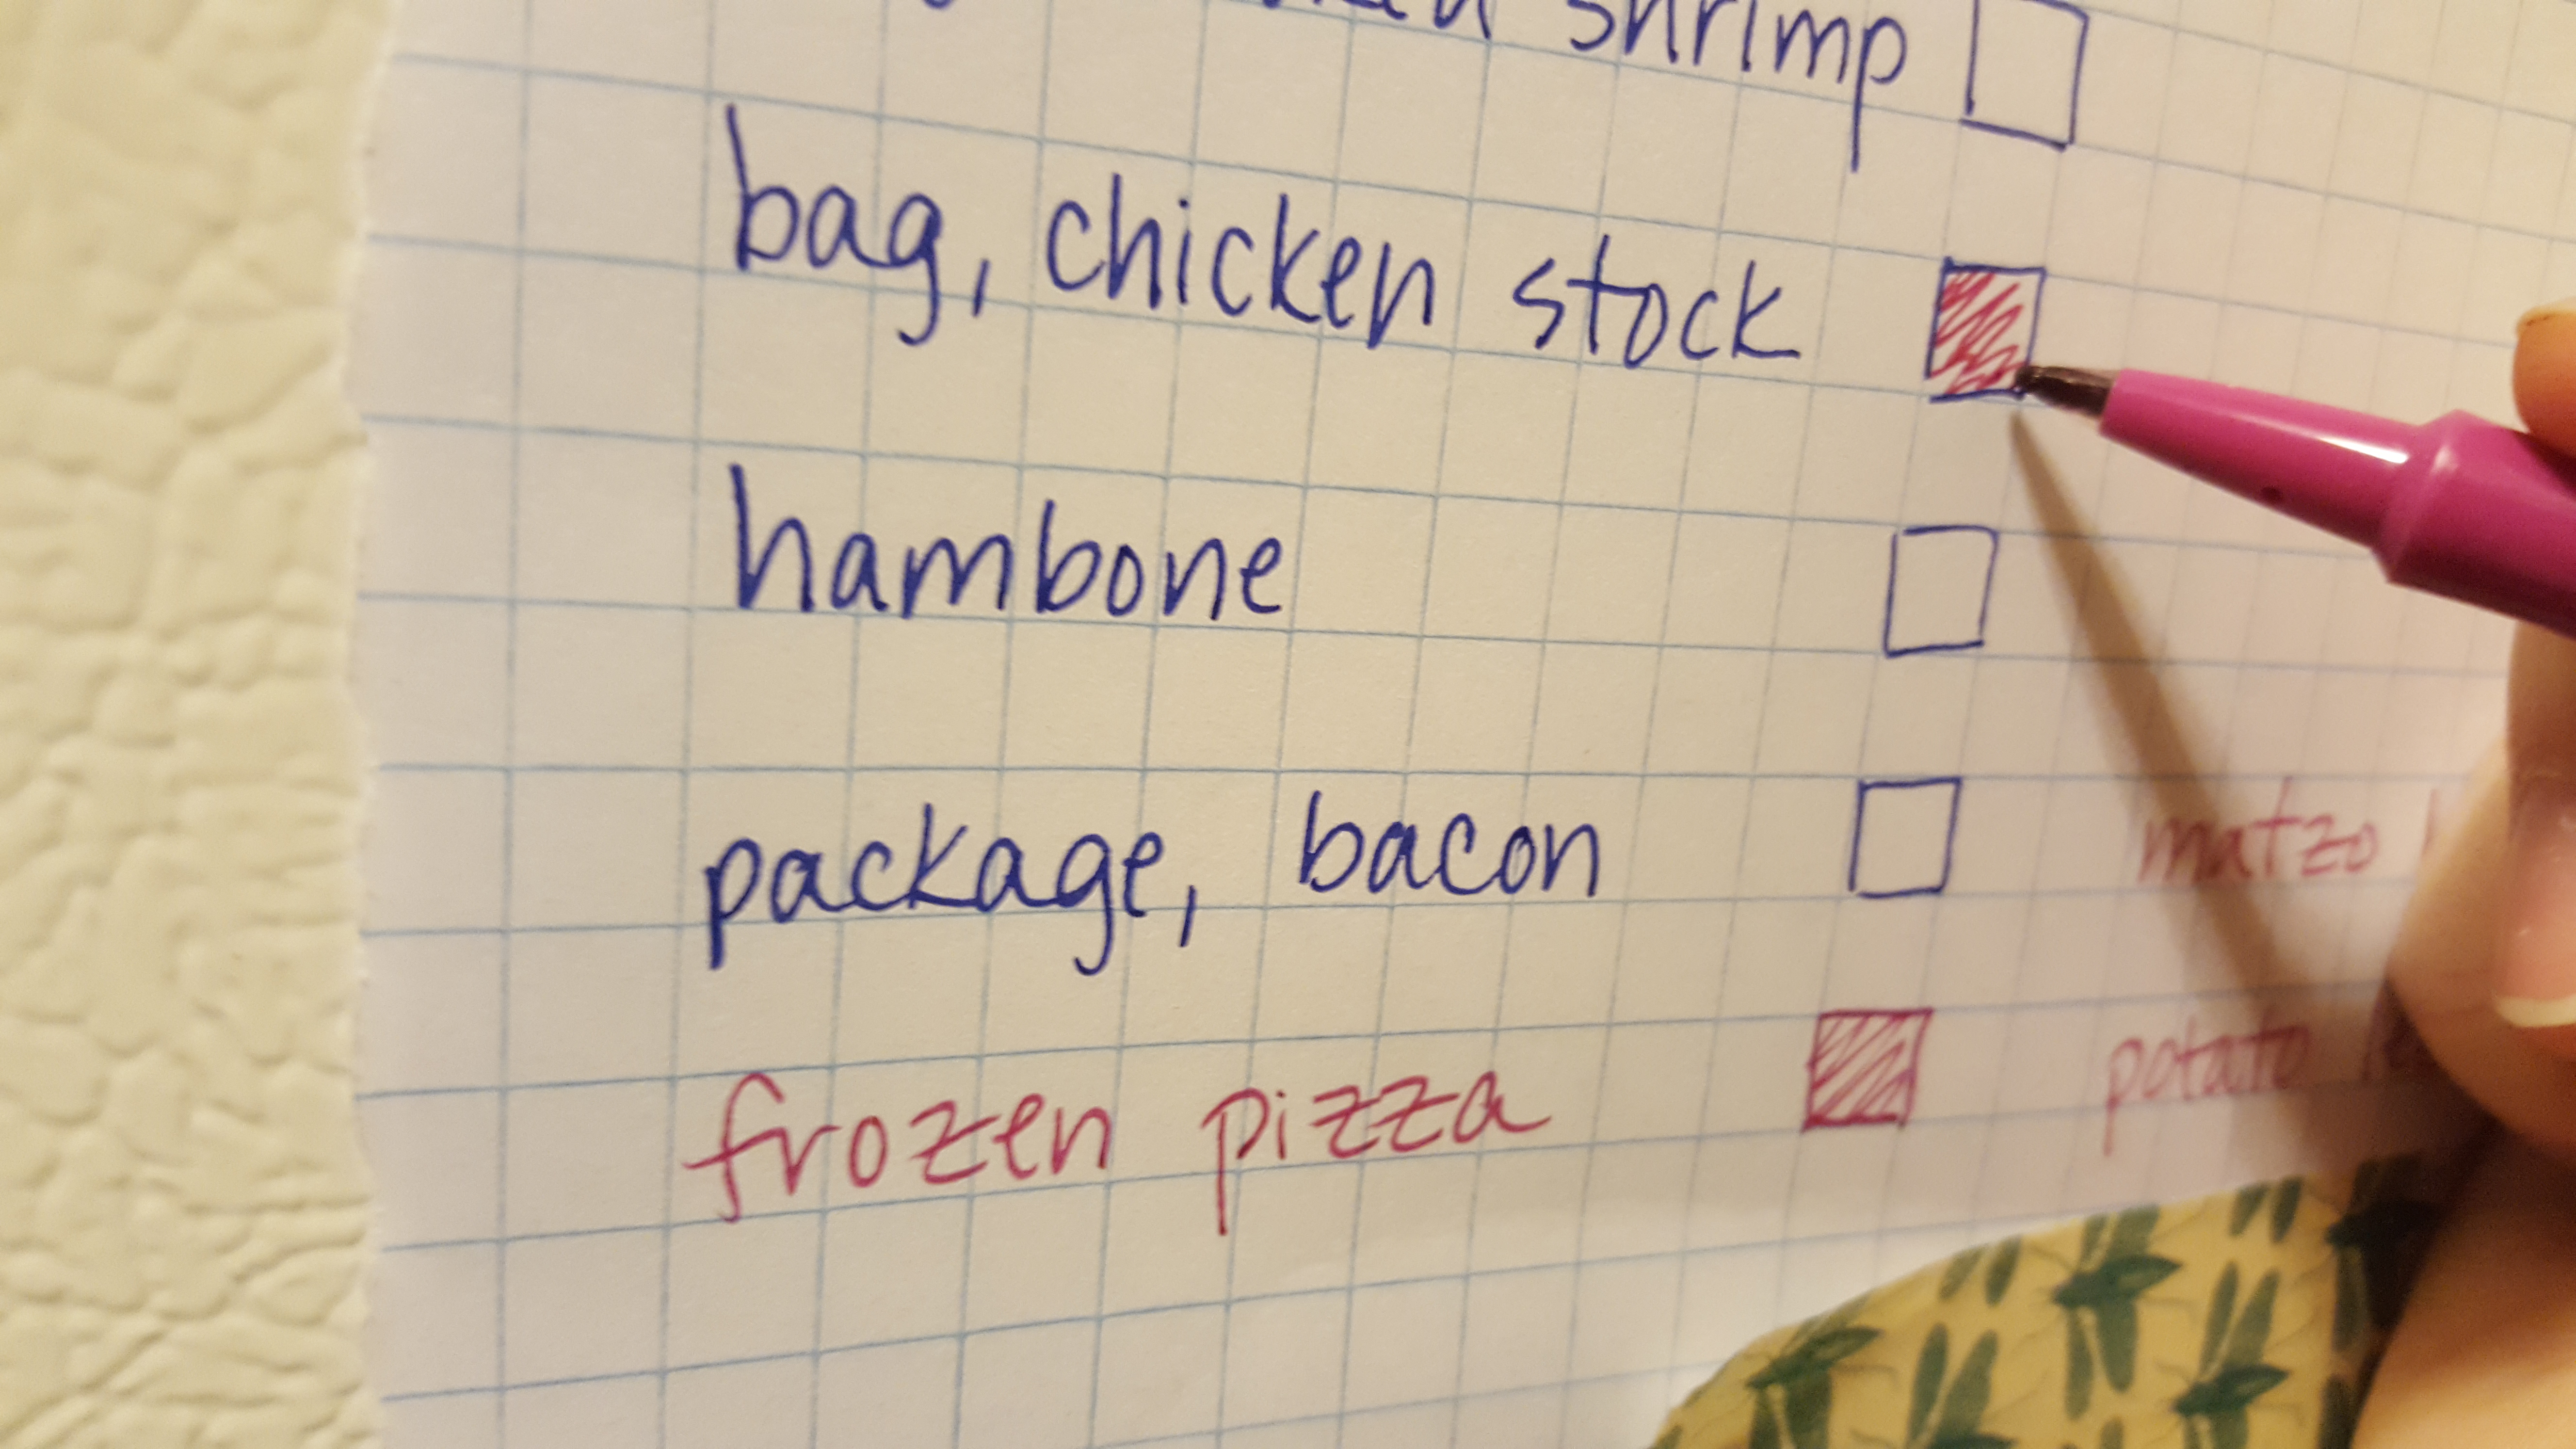 shrimp
bag, chicken stock
hambone
package, bacon
matzo
frozen pizza
potato